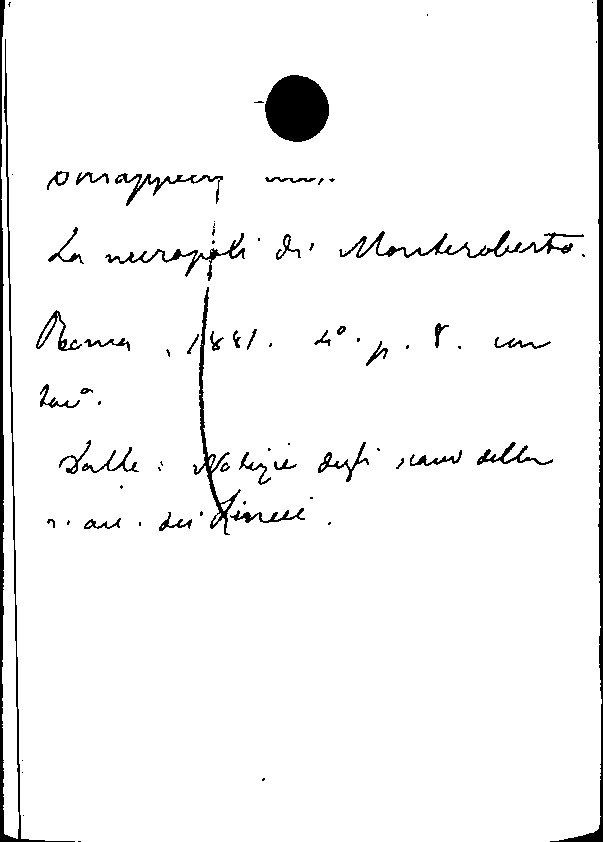 La necropoli di Monteroberto.
Roma, 1881. 4°. p. 8. con
tav.
Dalle: Notizie degli scavi della
r. acc. dei Lincei.